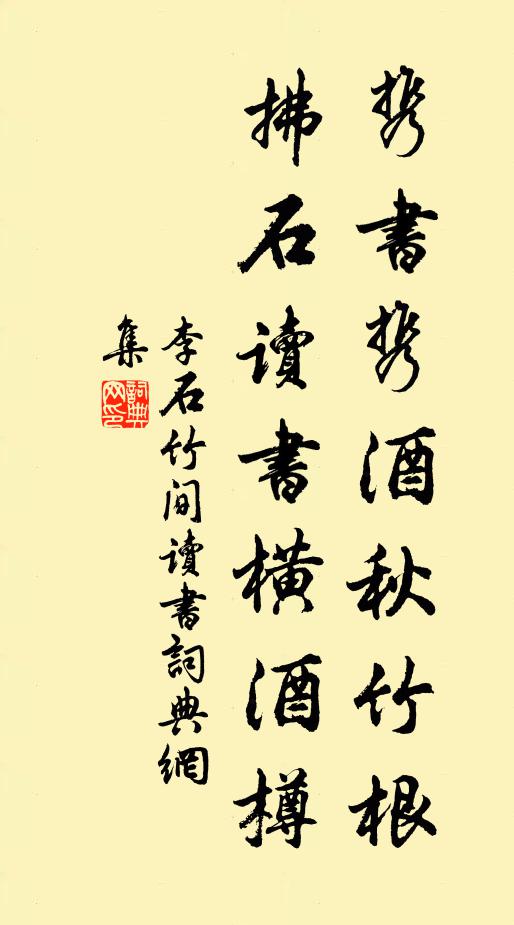 携書携酒秋竹根
拂石讀書橫酒樽
李石竹间讀書詞典網
集
詞典網印